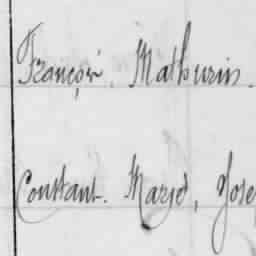 François, Mathurin.
Constant. Marie, Jose